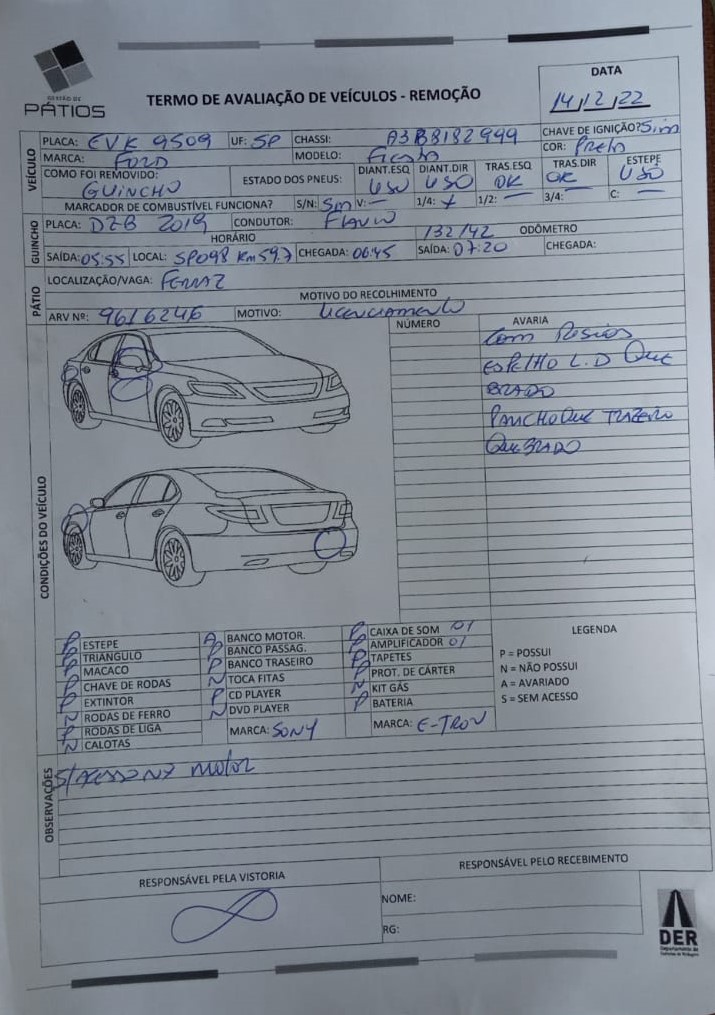 GESTÃO DE
PÁTIOS
TERMO DE AVALIAÇÃO DE VEÍCULOS - REMOÇÃO
DATA
14/12/22
VEÍCULO
PLACA: EVK 9509 UF: SP CHASSI: A3B8182999 CHAVE DE IGNIÇÃO? Sim
MARCA: FORD MODELO: Fiesta COR: Preto
COMO FOI REMOVIDO: GUINCHO ESTADO DOS PNEUS: DIANT.ESQ USO DIANT.DIR USO TRAS.ESQ OK TRAS.DIR OK ESTEPE USO
MARCADOR DE COMBUSTÍVEL FUNCIONA? S/N: Sim V: — 1/4: 1/2: — 3/4: — C: —
GUINCHO
PLACA: DZB 2019 CONDUTOR: FLAVIO
HORÁRIO 132142 ODÔMETRO
SAÍDA: 05:55 LOCAL: SP098 Km 59.7 CHEGADA: 06:45 SAÍDA: 07:20 CHEGADA:
PÁTIO
LOCALIZAÇÃO/VAGA: FERRAZ
MOTIVO DO RECOLHIMENTO
ARV Nº: 9616246 MOTIVO: Licenciamento
CONDIÇÕES DO VEÍCULO
NÚMERO AVARIA
Com
ESPELHO L.D QUE
BRADO
PARCHOQUE TRAZEIRO
QUEBRADO
P ESTEPE
P TRIANGULO
P MACACO
P CHAVE DE RODAS
P EXTINTOR
N RODAS DE FERRO
P RODAS DE LIGA
N CALOTAS
BANCO MOTOR.
P BANCO PASSAG.
P BANCO TRASEIRO
N TOCA FITAS
P CD PLAYER
N DVD PLAYER
MARCA: SONY
P CAIXA DE SOM 01
P AMPLIFICADOR 01
P TAPETES
P PROT. DE CÁRTER
N KIT GÁS
P BATERIA
MARCA: E-TRON
LEGENDA
P = POSSUI
N = NÃO POSSUI
A = AVARIADO
S = SEM ACESSO
OBSERVAÇÕES
motor
RESPONSÁVEL PELA VISTORIA
RESPONSÁVEL PELO RECEBIMENTO
NOME:
RG:
DER
Departamento de
Estradas de Rodagem